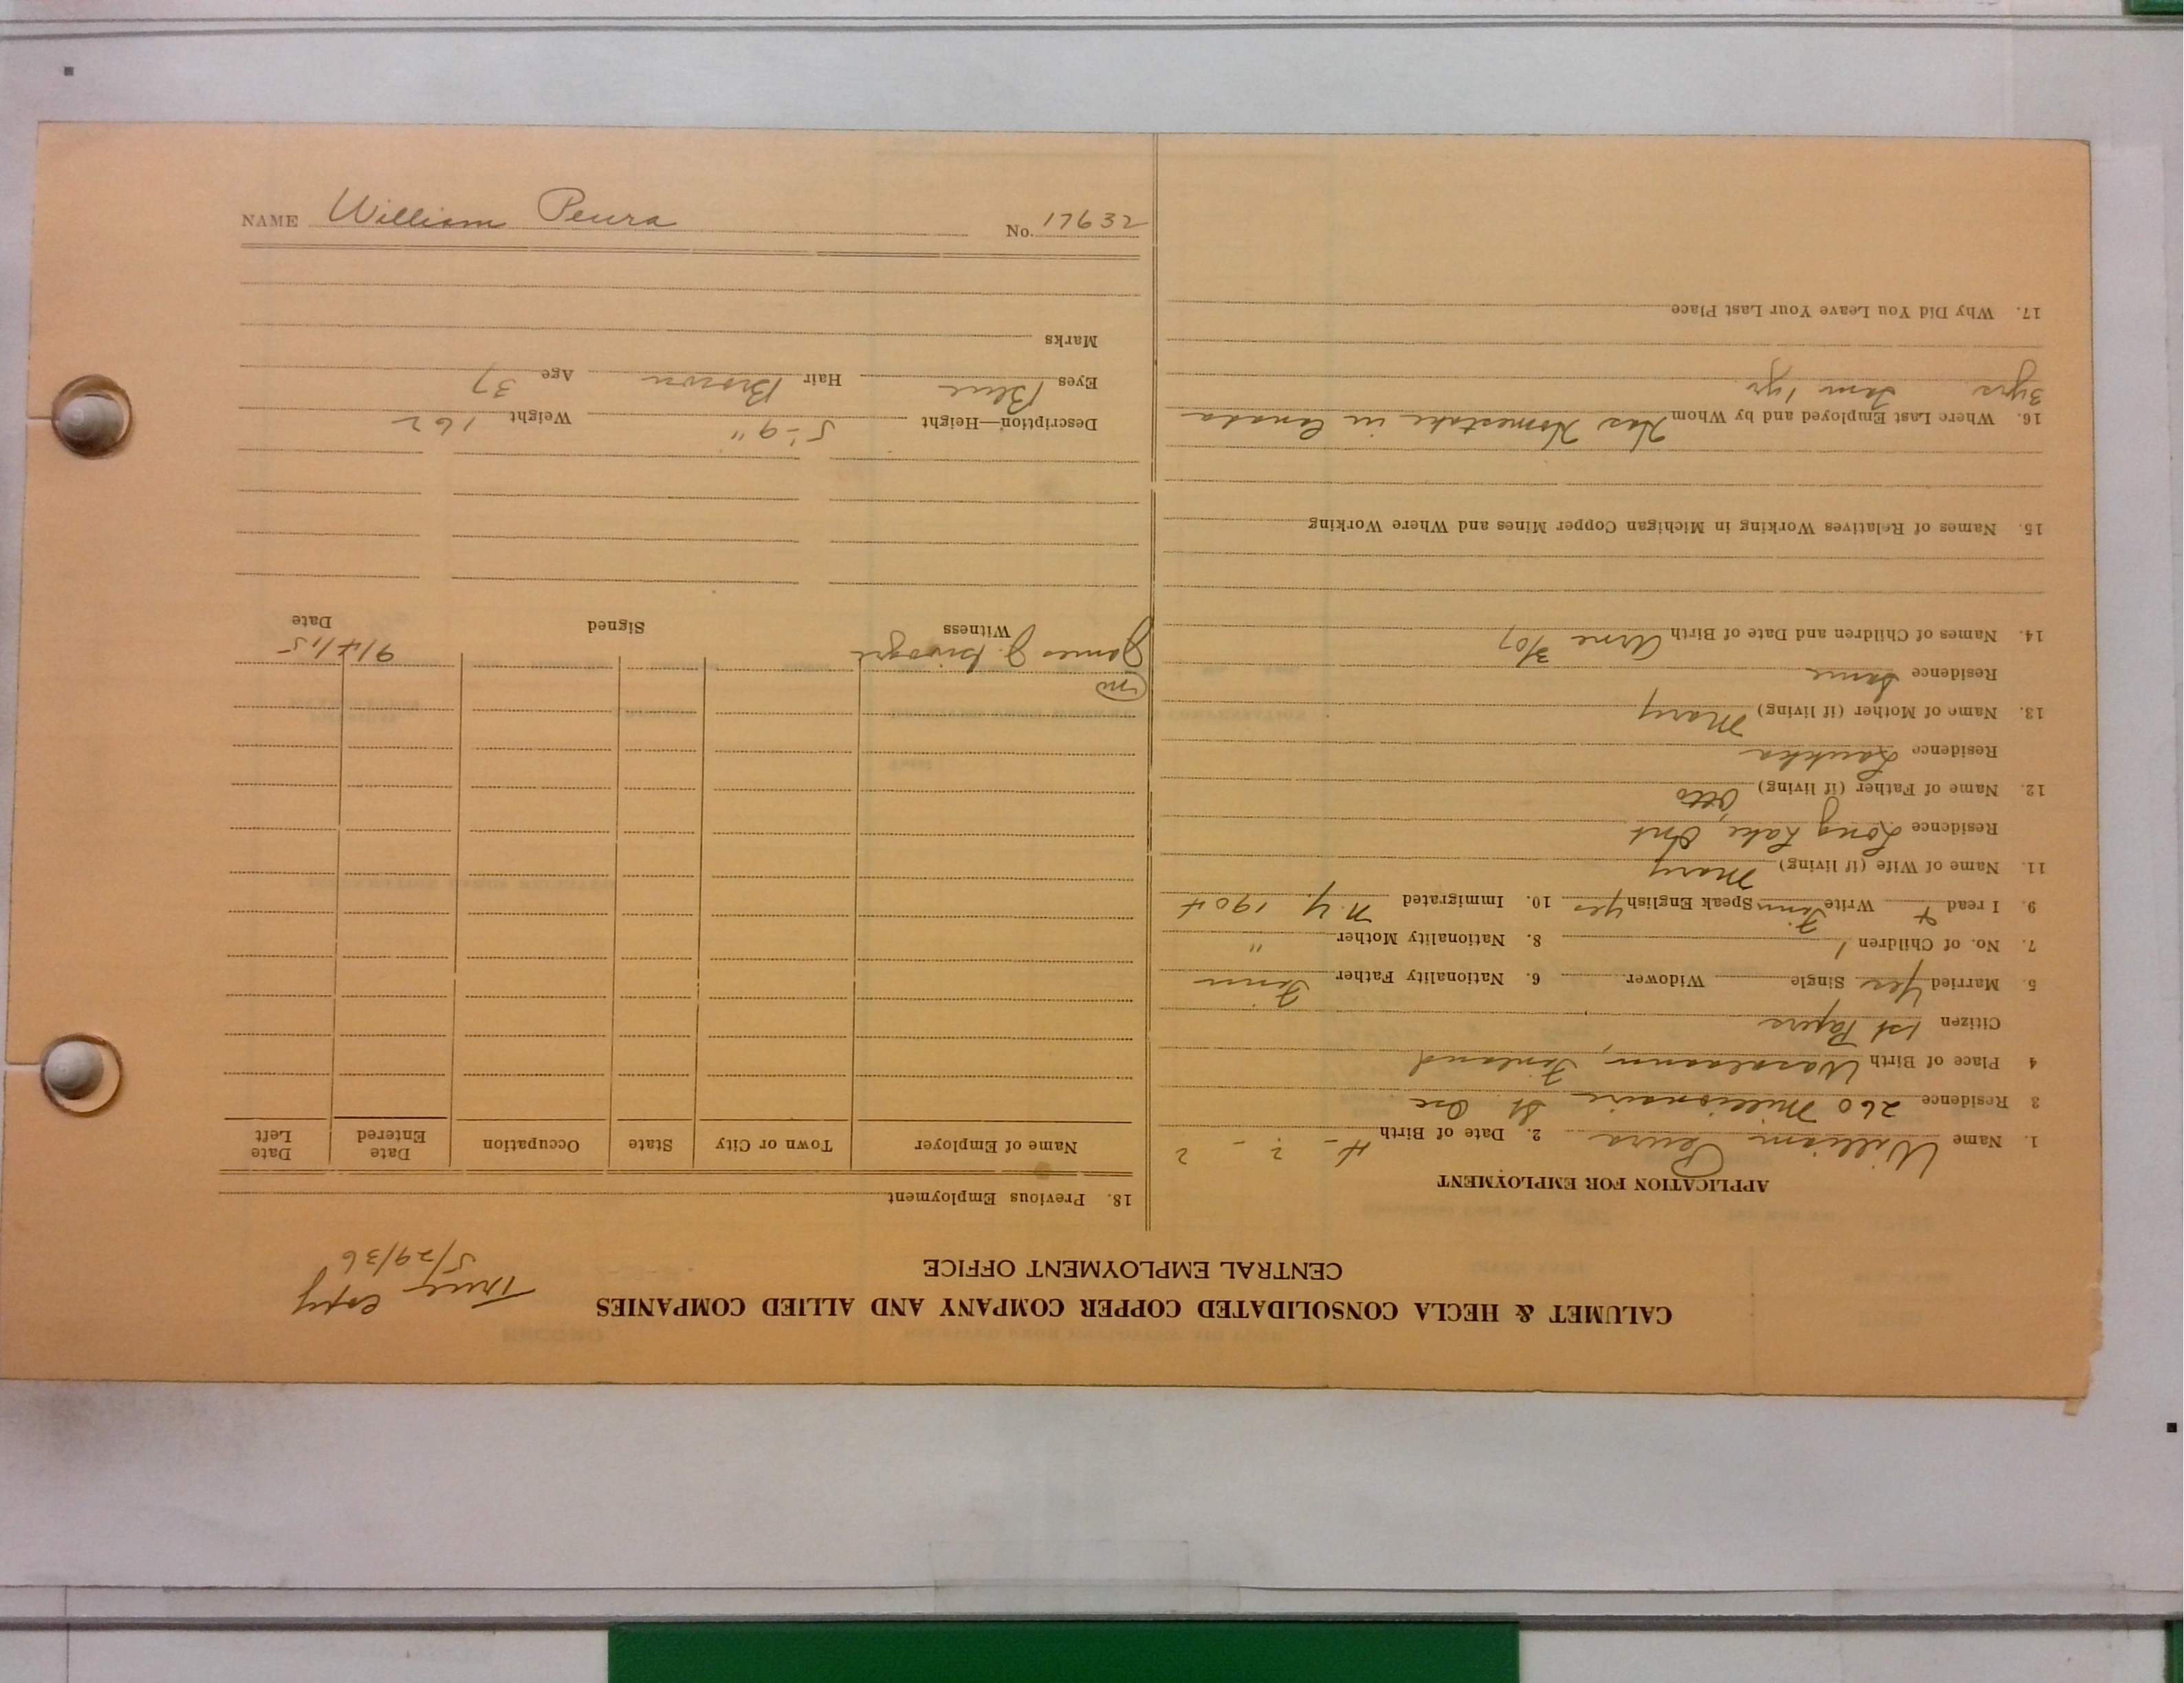 CALUMET & HECLA CONSOLIDATED COPPER COMPANY AND ALLIED COMPANIES
CENTRAL EMPLOYMENT OFFICE
True copy
5/29/36
APPLICATION FOR EMPLOYMENT
1. Name William Peura 2. Date of Birth 4 - ? - ?
3 Residence 260 Millionaire St Osc
4 Place of Birth Finland
Citizen 1st Papers
5. Married Yes Single Widower 6. Nationality Father Finn
7. No. of Children 1 8. Nationality Mother "
9. I read & Write Finn Speak English yes 10. Immigrated N.Y. 1904
11. Name of Wife (if living) Mary
Residence Long Lake, Ont
12. Name of Father (if living) Otto
Residence
13. Name of Mother (if living) Mary
Residence Same
14. Names of Children and Date of Birth Arne 3/07
15. Names of Relatives Working in Michigan Copper Mines and Where Working
16. Where Last Employed and by Whom Has Homestake in Canada
3 yrs 1 yr
17. Why Did You Leave Your Last Place
18. Previous Employment
Name of Employer Town or City State Occupation Date Entered Date Left
James J. 9/4/15
Witness Signed Date
Description—Height 5'-9" Weight 162
Eyes Blue Hair Brown Age 37
Marks
NAME William Peura No. 17632